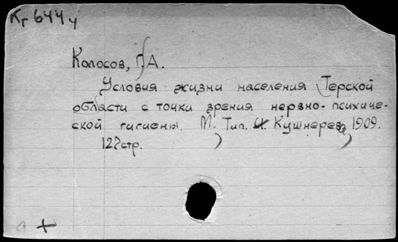 Кг 644ч
Колосов, Г.А.
Условия жизни населения Терской
области с точки зрения нервно-психиче-
ской гигиены. М., Тип. И. Кушнерев, 1909.
127стр.
а +